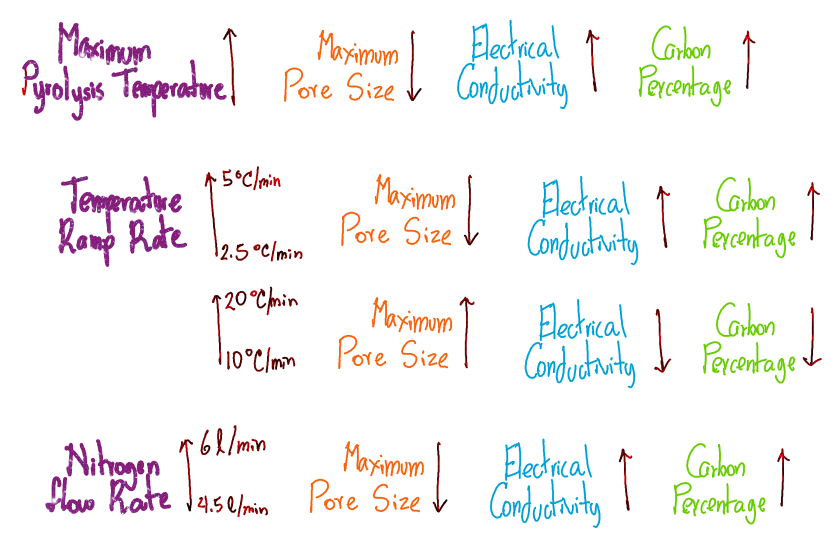 Maximum
Pyrolysis Temperature
Maximum
Pore Size
Electrical
Conductivity
Carbon
Percentage
Temperature
Ramp Rate
5°C/min
2.5°C/min
Maximum
Pore Size
Electrical
Conductivity
Carbon
Percentage
20°C/min
10°C/min
Maximum
Pore Size
Electrical
Conductivity
Carbon
Percentage
Nitrogen
flow Rate
6 l/min
4.5 l/min
Maximum
Pore Size
Electrical
Conductivity
Carbon
Percentage